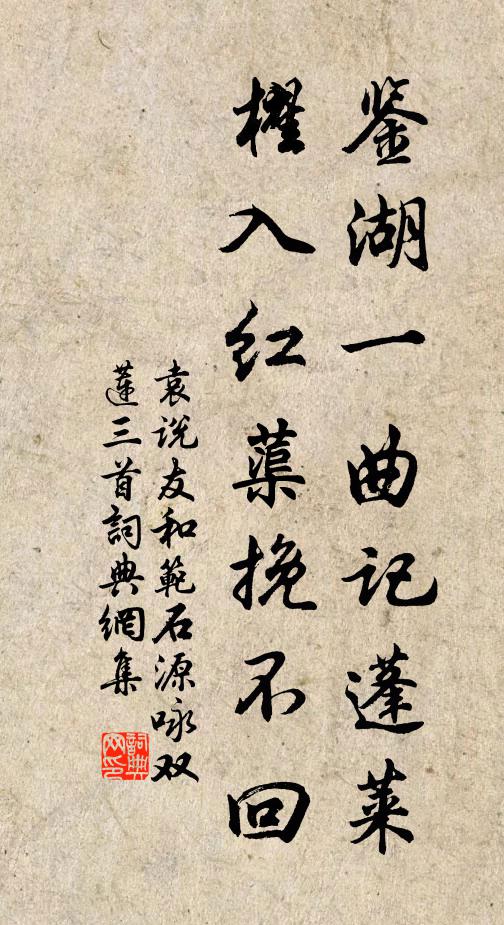 鉴湖一曲记蓬莱
櫂入红蕖挽不回
袁说友和範石源咏双
蓮三首詞典網集
詞典网印